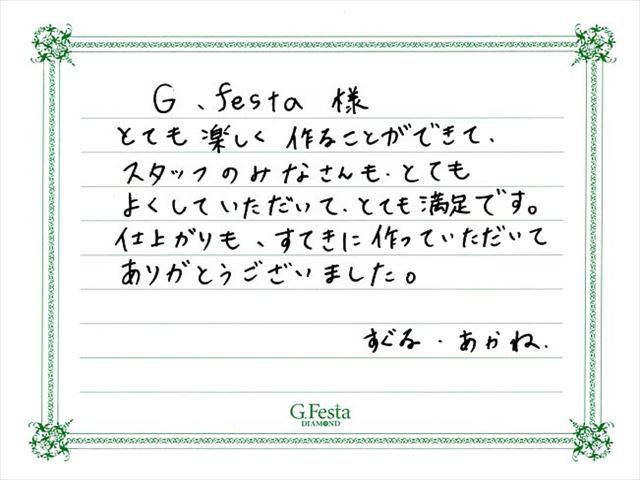 G.festa 様
とても楽しく作ることができて、
スタッフのみなさんも、とても
よくしていただいて、とても満足です。
仕上がりも、すてきに作っていただいて
ありがとうございました。
すぐる・あかね.
G.Festa
DIAMOND